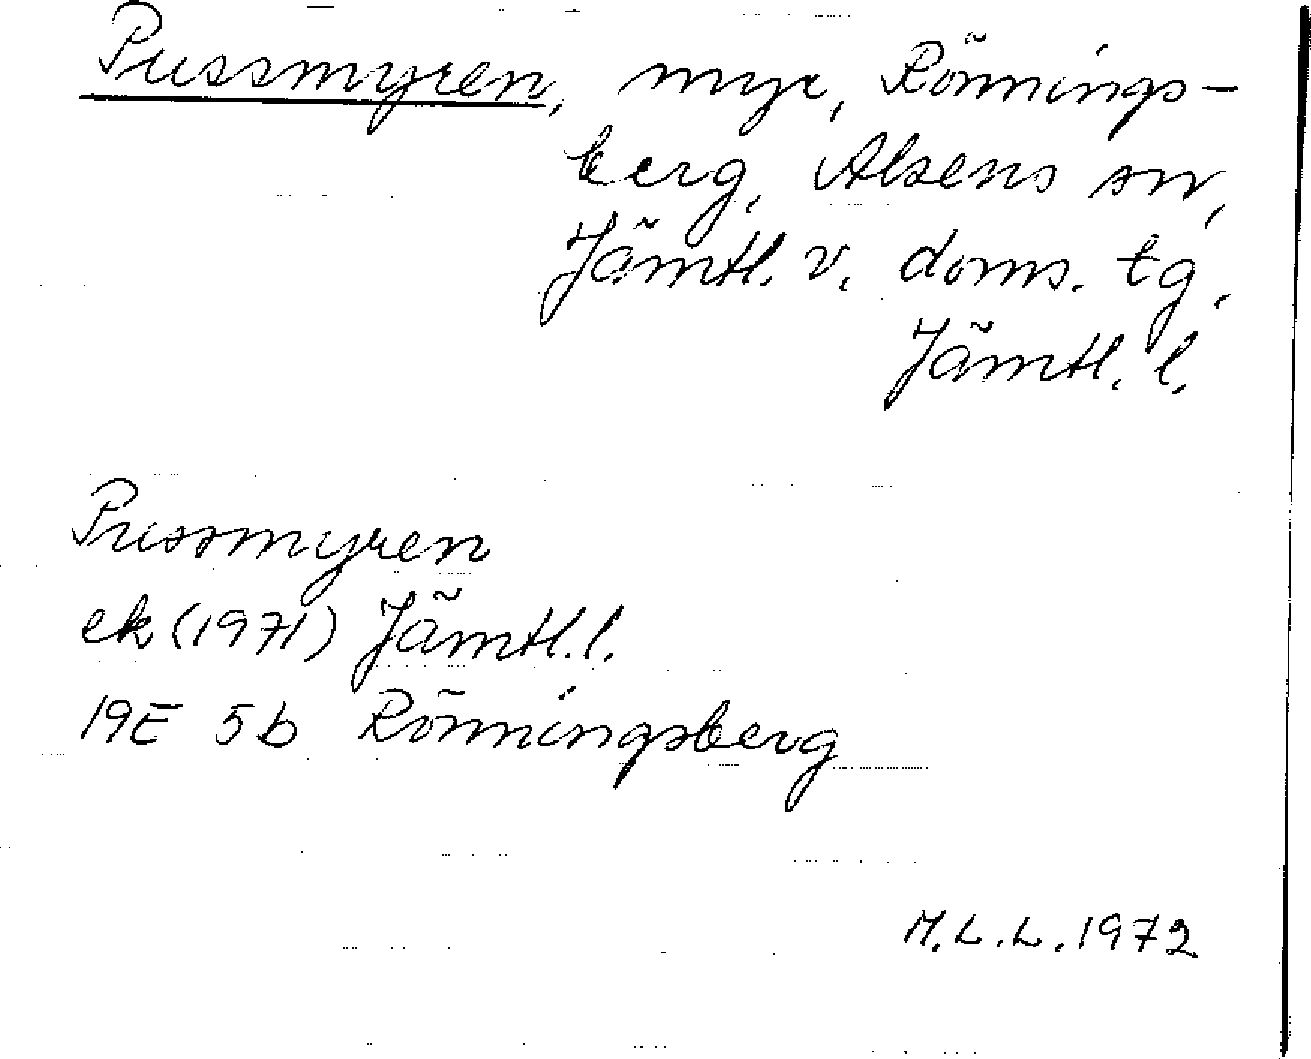 Pussmyren, myr, Rönnings-
berg, Alsens sn,
Jämtl. v. doms. tg,
Jämtl. l.
Pussmyren
ek (1971) Jämtl. l.
19E 5b Rönningsberg
M.L.L. 1972